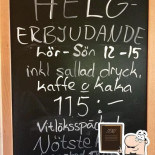 HELG-
ERBJUDANDE
lör-sön 12-15
inkl sallad dryck,
kaffe o kaka
115:-
Vitlöksspä
Nötste